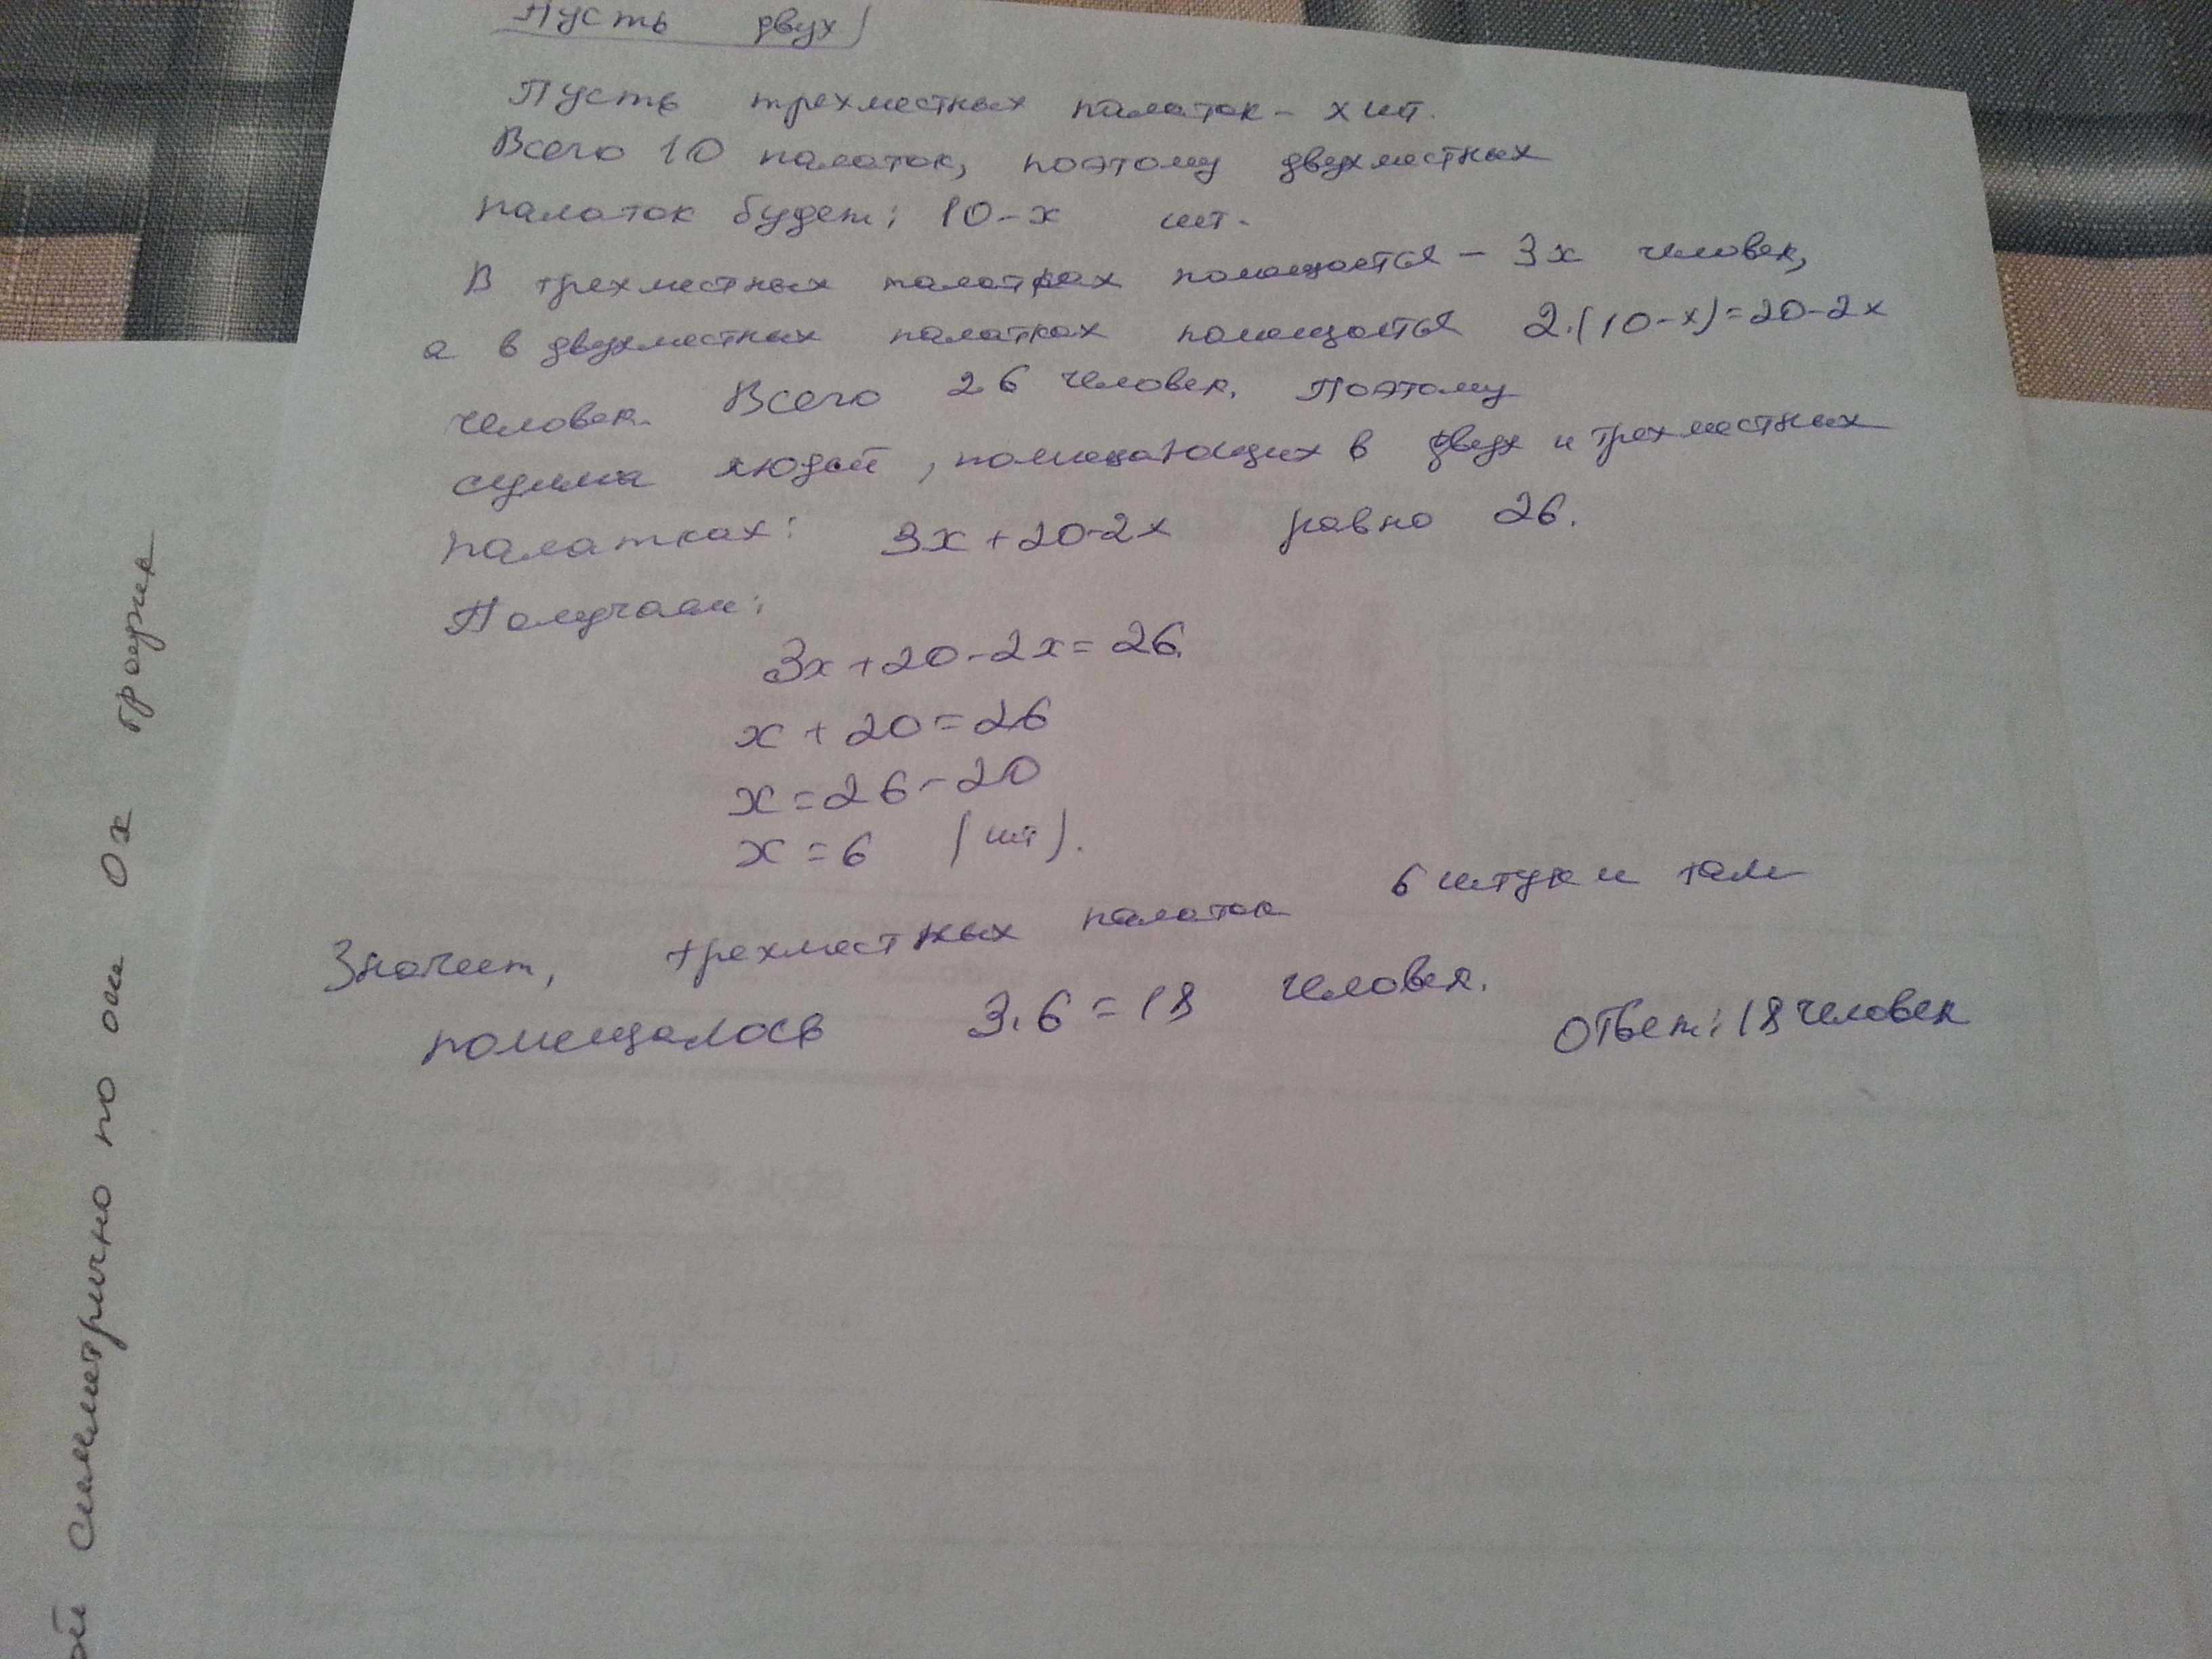 Пусть двух
Пусть трехместных палаток - х шт.
Всего 10 палаток, поэтому двухместных
палаток будет: 10-х шт.
В трехместных палатках помещается - 3х человек,
а в двухместных палатках помещается 2·(10-х)=20-2х
человек. Всего 26 человек. Поэтому
сумма людей, помещающих в двух и трехместных
палатках: 3х+20-2х равно 26.
Получаем:
3х+20-2х=26.
х+20=26
х=26-20
х=6 (шт).
Значит, трехместных палаток 6 штук и там
помещалось 3·6=18 человек.
Ответ: 18 человек
ой симметрично по оси Ох график